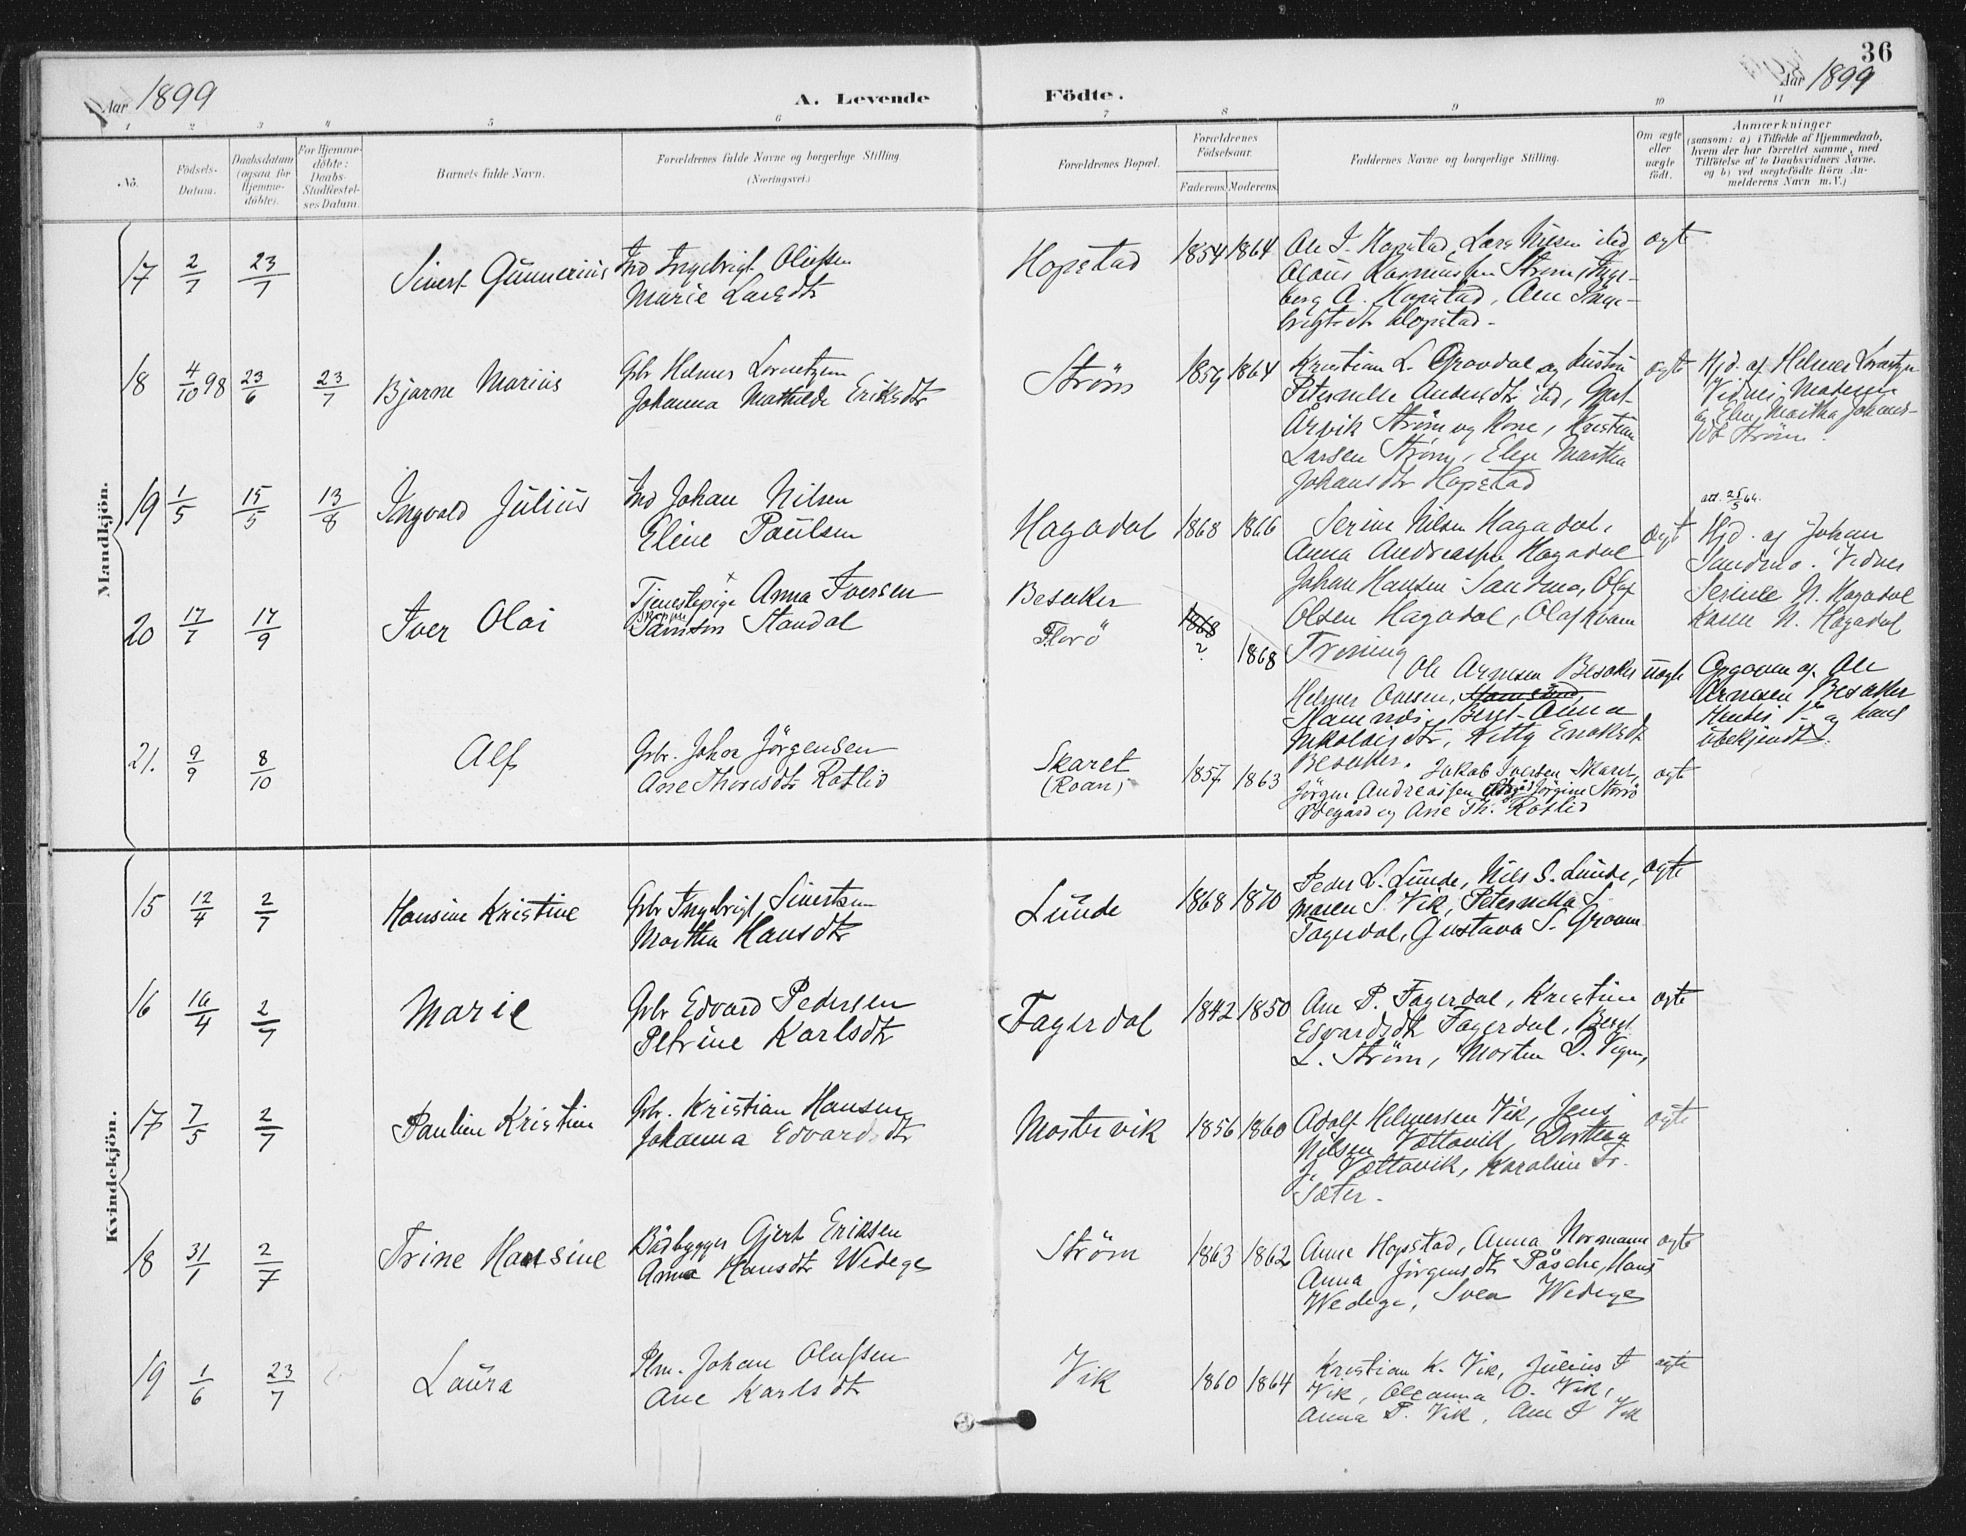 36
Aar 1899
A. Levende Födte.
Aar 1899
1 2 3 4 5 6 7 8 9 10 11
No.
Födsels-
Datum.
Daabsdatum
(ogsaa for
Hjemme-
döbte).
For Hjemme-
döbte:
Daabs-
Stadfæstel-
ses Datum.
Barnets fulde Navn.
Forældrenes fulde Navne og borgerlige Stilling
(Næringsvei.)
Forældrenes Bopæl.
Forældrenes
Födselsaar.
Faderens. Moderens.
Faddernes Navne og borgerlige Stilling.
Om ægte
eller
uægte
født.
Anmærkninger
(saasom: a) i Tilfælde af Hjemmedaab,
hvem der har forrettet samme, med
Tilföielse af to Daabsvidners Navne,
og b) ved uægtefödte Börn An-
melderens Navn m. V.)
Mandkjön.
17 2/7 23/7 Sivert Gunnerius
Ind Ingebrigt Olufsen
Marie Larsdtr
Hopstad 1854 1864
Ole I. Hopstad, Lars Nilsen ibd
Olaus Rasmussen Strøm, Inge-
berg A. Hopstad, Ane Inge-
brigtsdtr Hopstad.
ægte
18 4/10 98 23/6 23/7 Bjarne Marius
Gbr Helmer Lorentzen
Johanna Mathilde Eriksdtr
Strøm 1859 1864
Kristian L. Grovdal og hustru
Peternelle Andersdtr ibd,
Årvik Strøm og Kone, Kristian
Larsen Strøm, Elen Martha
Johansdtr Hopstad
ægte
Hjd. af Helmer Lorentzen
Vidner Moderen
og Elen Martha Johans-
dtr Strøm.
19 1/5 15/5 13/8 Ingvald Julius
Ind Johan Nilsen
Eline Paulsen
Hagadal 1868 1866
Serine Nilsen Hagadal,
Anna Andreassen Hagadal
Johan Hansen Sandmo, Olaf
Olsen Hagadal, Olaf Kvam
Trøning
ægt
att. 25/5 64.
Hjd. af Johan
Sandmo. Vidner
Serine N. Hagadal
Karen N. Hagadal
20 17/7 17/9 Iver Olai
Tjenestepige Anna Iversen
Skipper
Samson Standal
Besaker
Florö
1868
?
1868
Ole Arnesen Besaker
Helmer Olsen,
Beret Anna
Nikolaisdtr, Kitty Enoksdtr
Besaker.
uægte
Opgaven af Ole
Arnesen Besaker
21. 9/9 8/10 Alf
Gbr. Johan Jörgensen
Ane Thoresdtr Rotlid
Skaret
(Roan)
1857 1863
Jakob Iversen Skaret,
Jörgen Andreassen Jörgine Storrö
Ödegård og Ane Th. Rotlid
ægte
Kvindekjön.
15 12/4 2/7 Hansine Kristine
Gbr Ingebrigt Sivertsen
Martha Hansdtr
Lunde 1868 1870
Peder L. Lunde, Nils S. Lunde,
Maren S. Vik, Peternella S.
Fagerdal, Gustava S.
ægte
16 16/4 2/7 Marie
Gbr Edvard Pedersen
Petrine Karlsdtr
Fagerdal 1842 1850
Ane P. Fagerdal, Kristine
Edvardsdtr Fagerdal, Beret
L. Strøm, Morten D.
ægte
17 7/5 2/7 Pauline Kristine
Gbr. Kristian Hansen
Johanna Edvardsdtr
Mostervik 1856 1860
Adolf Helmersen Vik, Jens
Nilsen Vættavik, Dorthea
J. Vættavik, Karoline Fr.
Sæter.
ægte
18 31/1 2/7 Trine Hansine
Bådbygger Gjert Eriksen
Anna Hansdtr Wedege
Strøm 1863 1862
Anne Hopstad, Anna Normann
Anna Jörgensdtr Påsche, Hans
Wedege, Svea Wedege
ægte
19 1/6 23/7 Laura
Plm. Johan Olufsen
Ane Karlsdtr
Vik 1860 1864
Kristian K. Vik, Julius I
Vik, Oleanna O. Vik,
Anna P. Vik, Ane I Vik
ægte